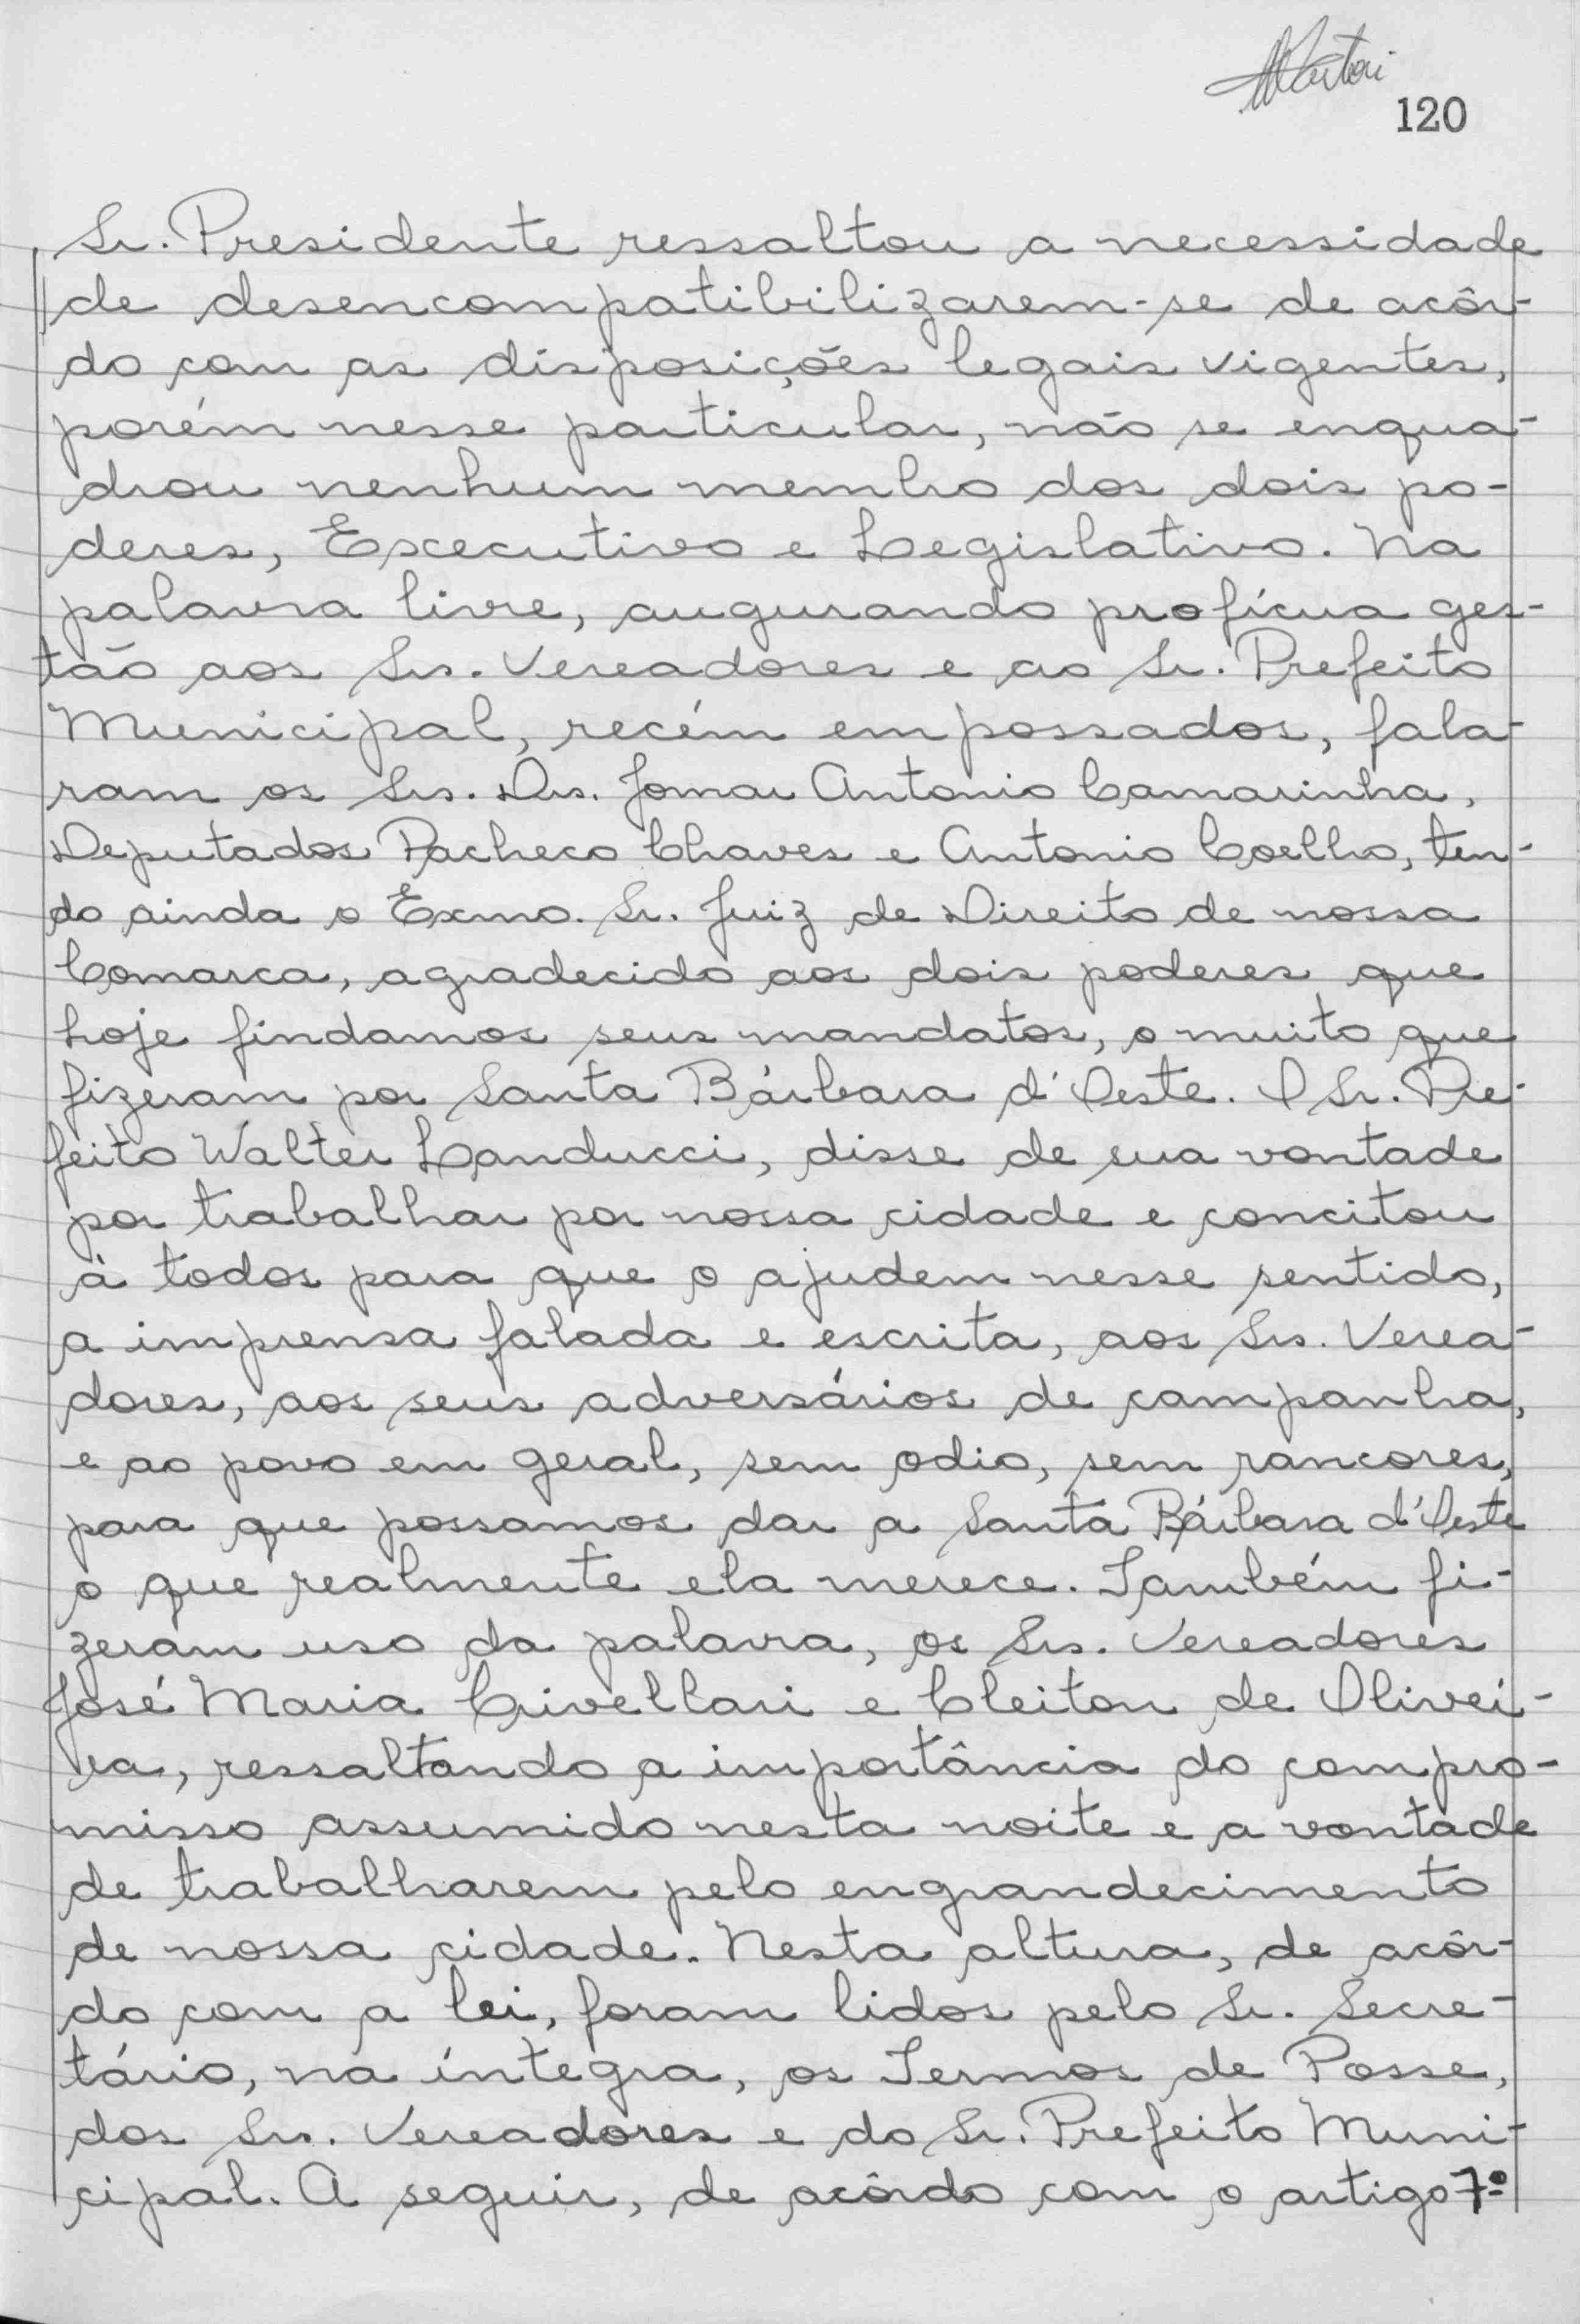 120
Sr. Presidente ressaltou a necessidade
de desencompatibilizarem-se de acôr-
do com as disposições legais vigentes,
porém nesse particular, não se enqua-
drou nenhum membro dos dois po-
deres, Executivo e Legislativo. Na
palavra livre, augurando profícua ges-
tão aos Srs. Vereadores e ao Sr. Prefeito
Municipal, recém empossados, fala-
ram os Srs. Drs. Jomar Antonio Camarinha,
Deputados Pacheco Chaves e Antonio Coelho, ten-
do ainda o Exmo. Sr. Juiz de Direito de nossa
Comarca, agradecido aos dois poderes que
hoje findamos seus mandatos, o muito que
fizeram por Santa Bárbara d'Oeste. O Sr. Pre-
feito Walter Landucci, disse de sua vontade
por trabalhar por nossa cidade e concitou
à todos para que o ajudem nesse sentido,
a imprensa falada e escrita, aos Srs. Verea-
dores, aos seus adversários de campanha,
e ao povo em geral, sem odio, sem rancores,
para que possamos dar a Santa Bárbara d'Oeste
o que realmente ela merece. Também fi-
zeram uso da palavra, os Srs. Vereadores
José Maria Crivellari e Cleiton de Olivei-
ra, ressaltando a importância do compro-
misso assumido nesta noite e a vontade
de trabalharem pelo engrandecimento
de nossa cidade. Nesta altura, de acôr-
do com a lei, foram lidos pelo Sr. Secre-
tário, na íntegra, os Termos de Posse,
dos Srs. Vereadores e do Sr. Prefeito Muni-
cipal. A seguir, de acôrdo com o artigo 7º